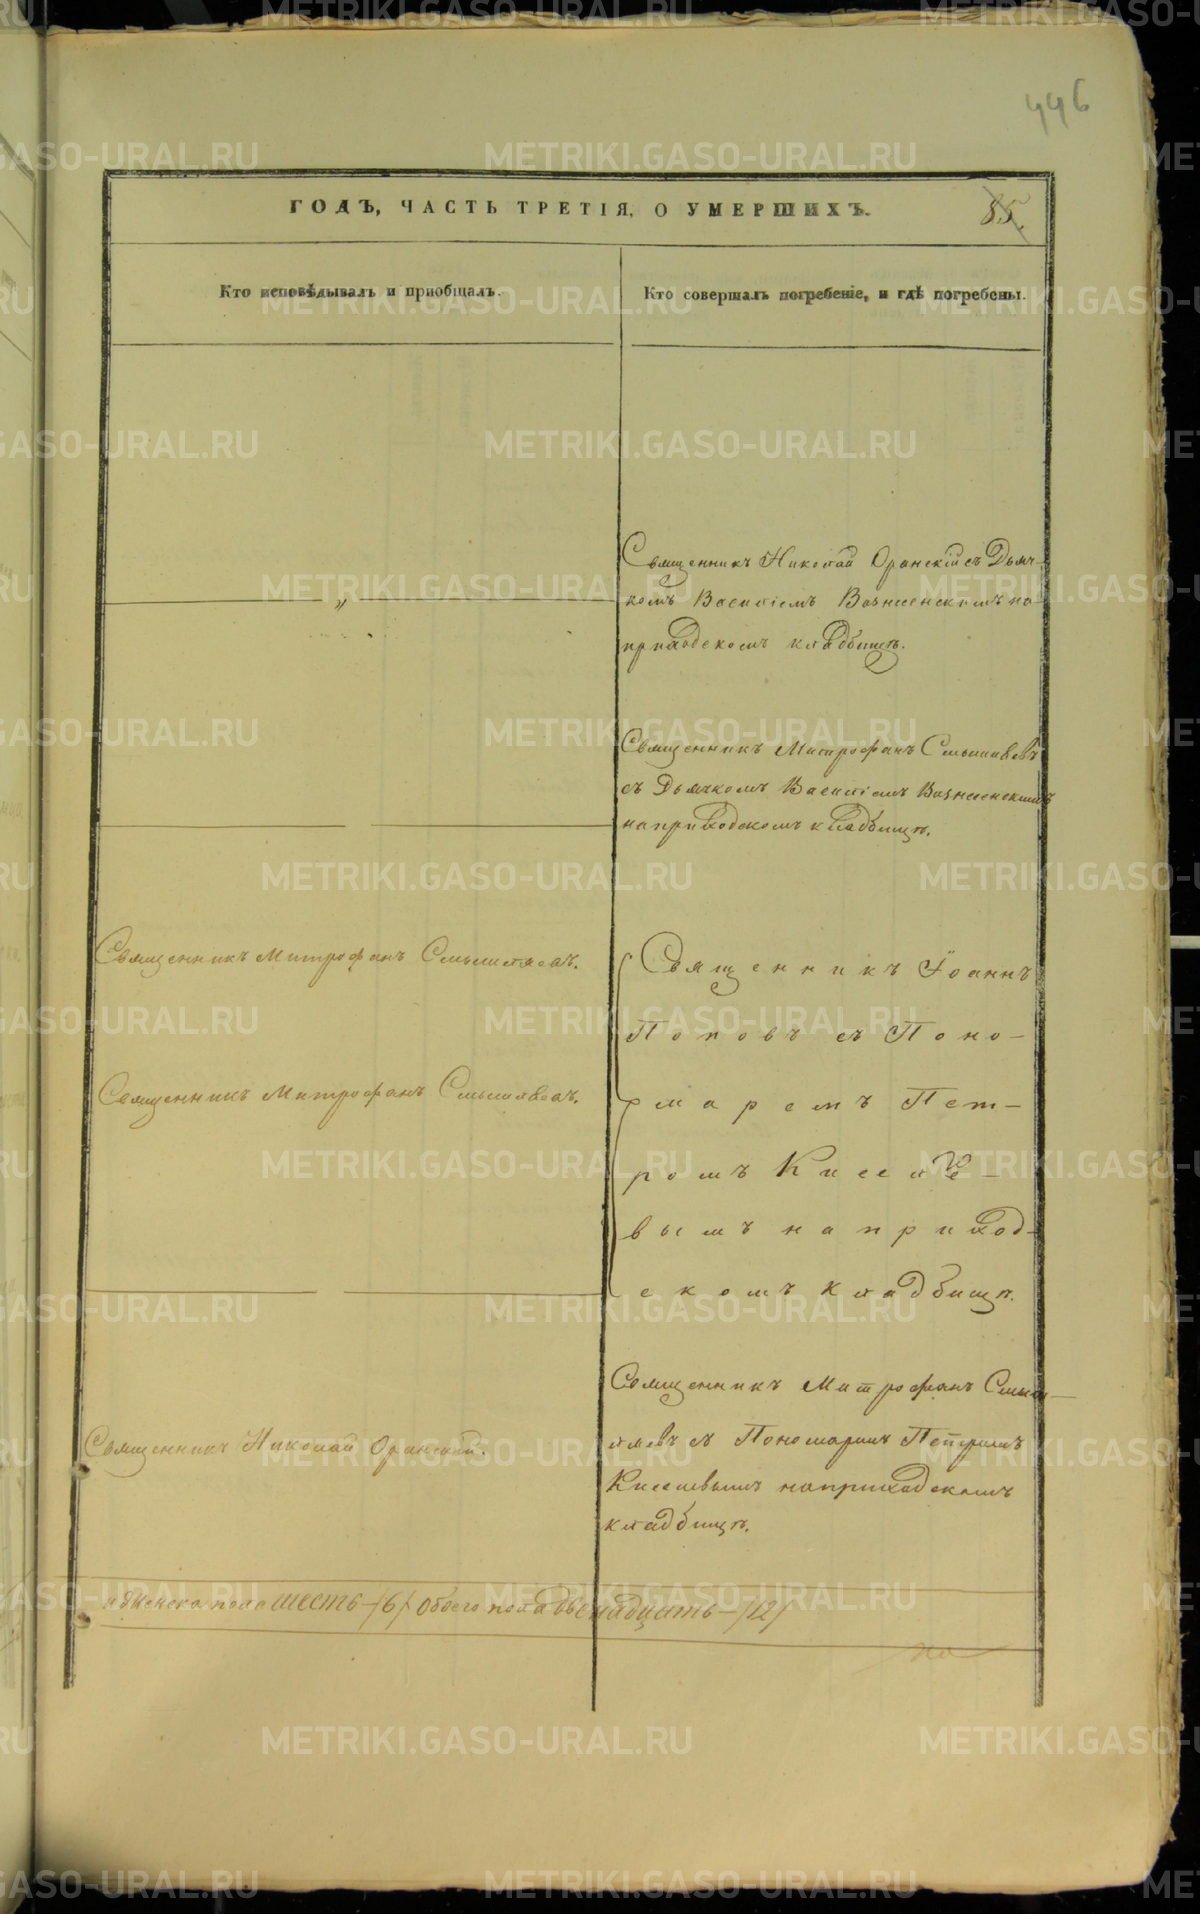 446
ГОДЪ, ЧАСТЬ ТРЕТІЯ, О УМЕРШИХЪ.
85.
Кто исповѣдывалъ и приобщалъ.
Кто совершалъ погребеніе, и гдѣ погребены.
Священникъ Николай Оранскій съ Дьяч-
комъ Василіемъ Вознесенскимъ на
приходскомъ кладбищѣ.
"
Священникъ Митрофанъ
съ Дьячкомъ Василіемъ Вознесенскимъ
на приходскомъ кладбищѣ.
Священникъ Митрофанъ
Священникъ Митрофанъ
Священникъ Іоаннъ
Поповъ съ Поно-
маремъ Пет-
ромъ Киселе-
вымъ на приход-
скомъ кладбищѣ.
Священникъ Николай Оранскій.
Священникъ Митрофанъ
съ Пономаремъ Петромъ
Киселевымъ на приходскомъ
кладбищѣ.
и женска пола шесть /6/ Обоего пола двенадцать /12/
METRIKI.GASO-URAL.RU